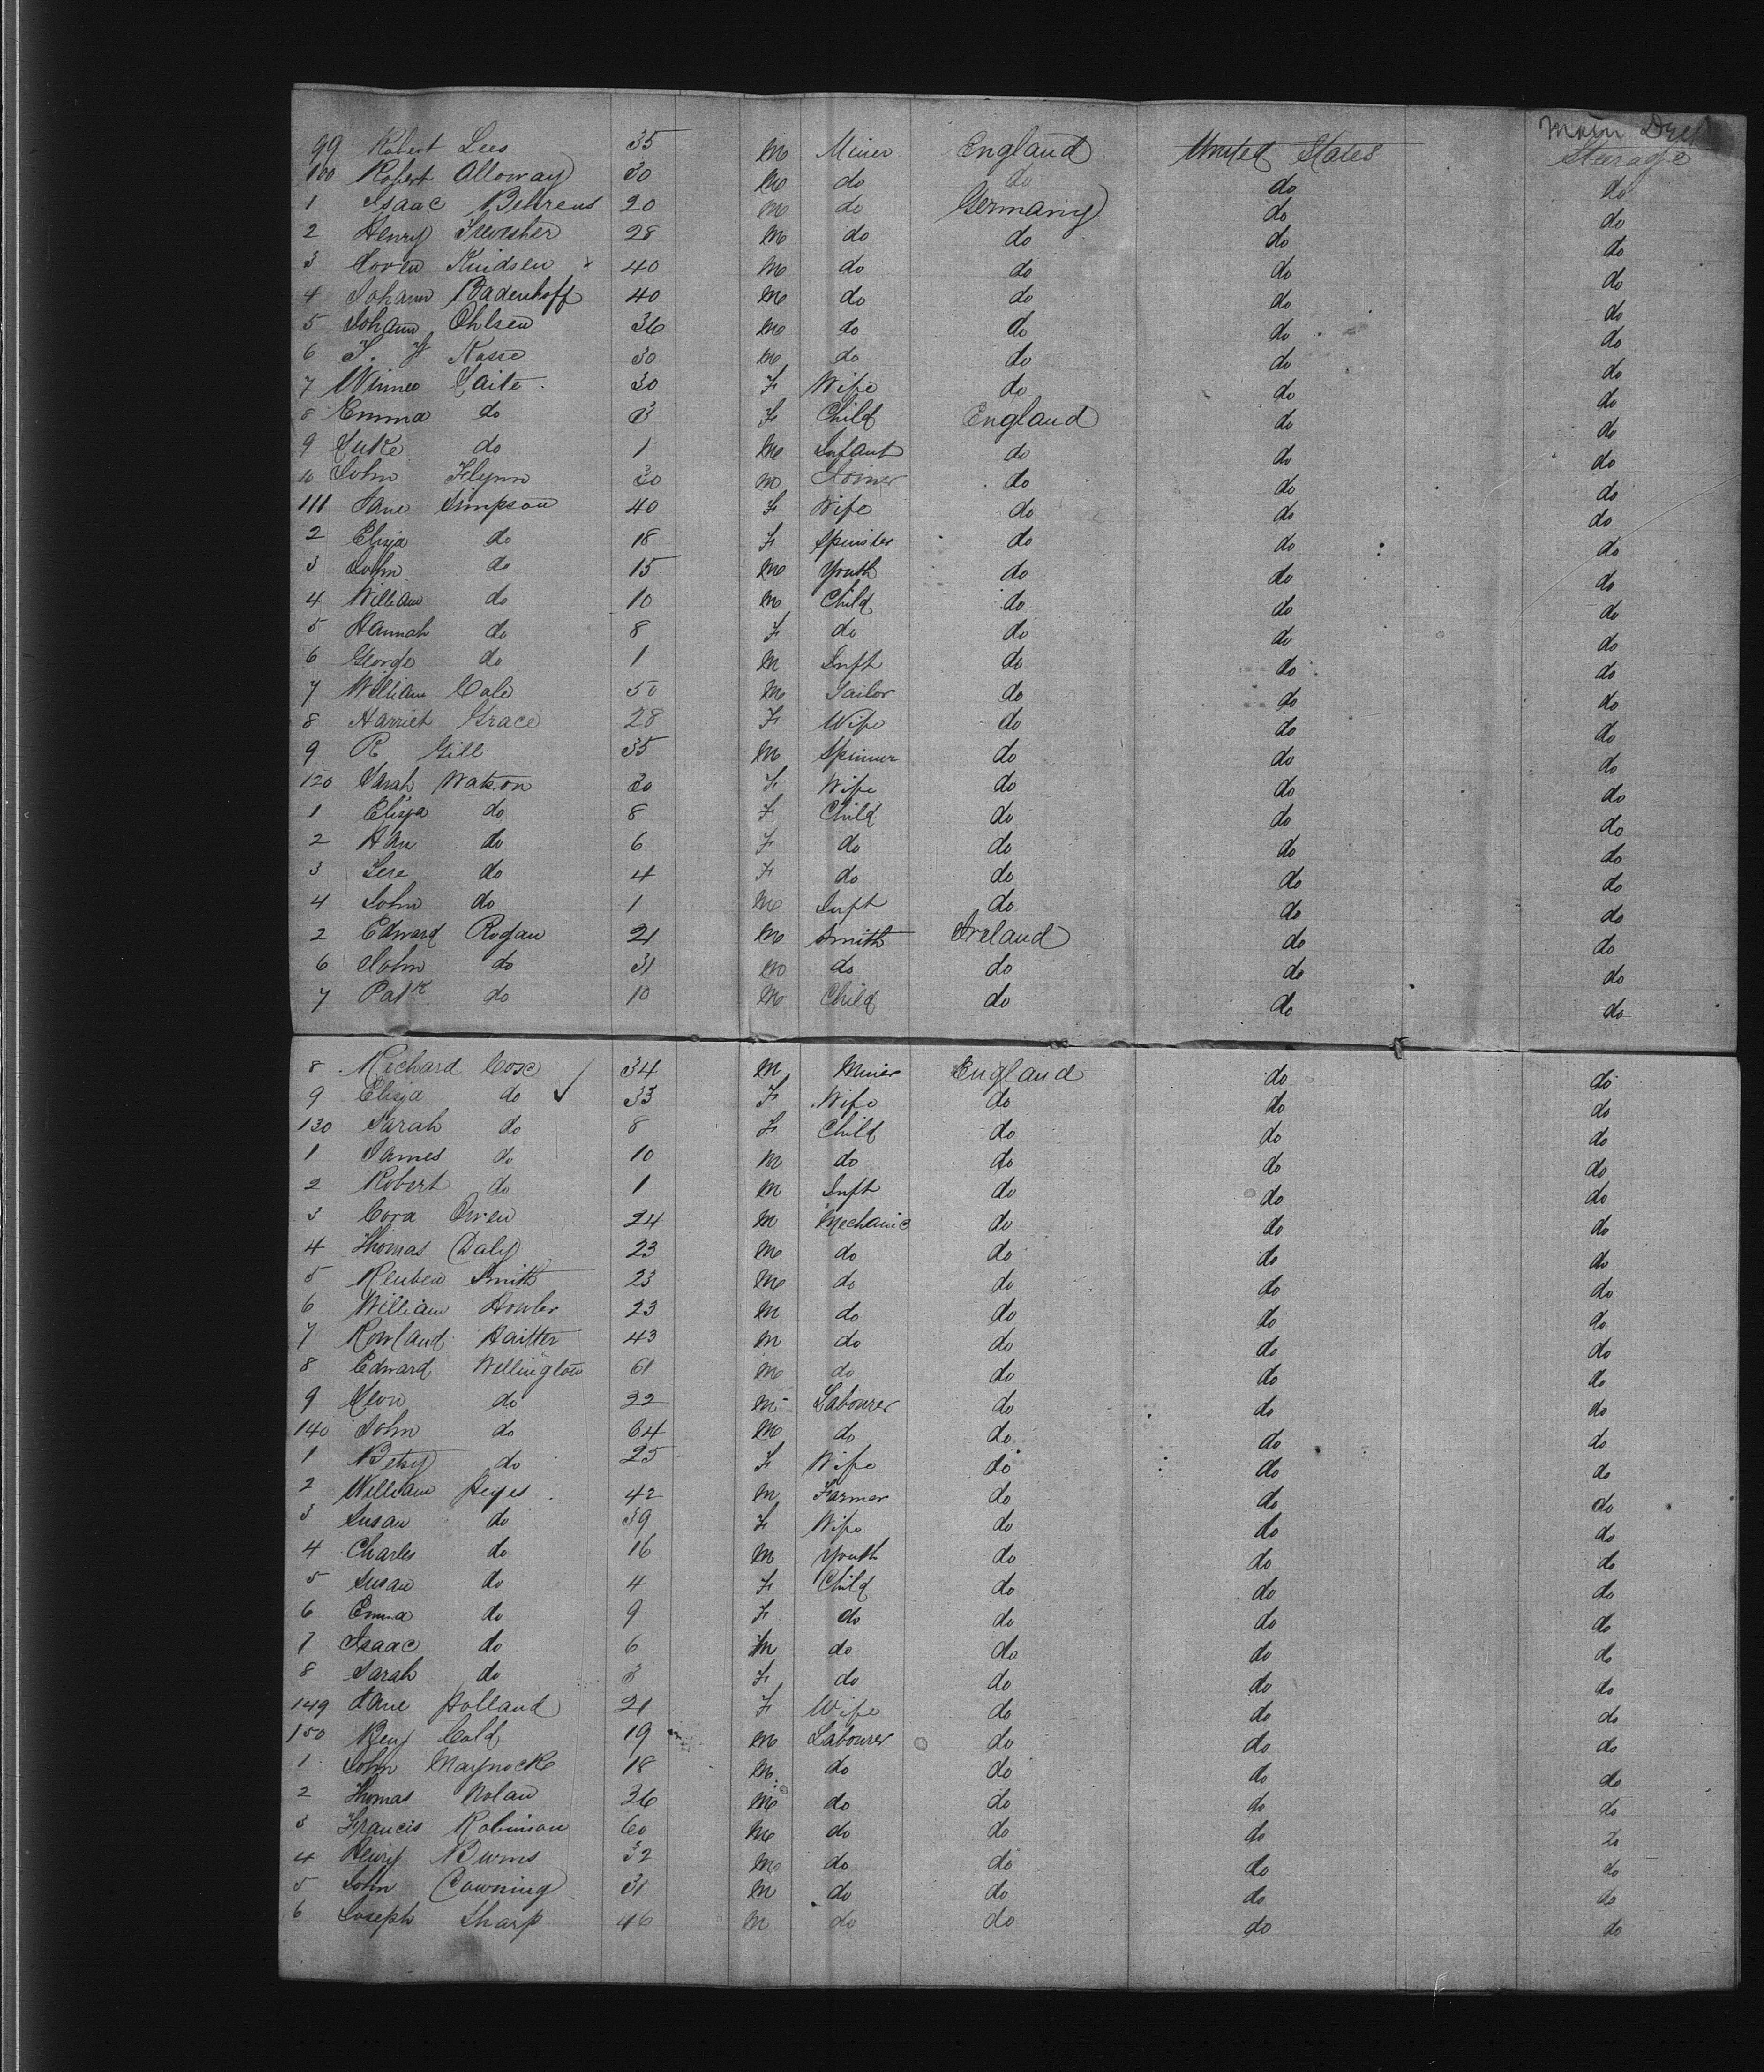 Main Deck
99 Robert Lees 35 M Miner England United States Steerage
100 Robert Alloway 30 M do do do do
1 Isaac Behrens 20 M do Germany do do
2 Henry 28 M do do do do
3 Soren Knidsen x 40 M do do do do
4 Johann Badenhoff 40 M do do do do
5 Johann Ohlsen 36 M do do do do
6 30 M do do do do
7 30 F Wife do do do
8 Emma do 3 F Child England do do
9 Luke do 1 M Infant do do do
10 John Flynn 30 M Joiner do do do
111 Jane Simpson 40 F Wife do do do
2 Eliza do 18 F Spinster do do do
3 John do 15 M Youth do do do
4 William do 10 M Child do do do
5 Hannah do 8 F do do do do
6 George do 1 M Inft do do do
7 William Cale 50 M Tailor do do do
8 Harriet Grace 28 F Wife do do do
9 R Gill 35 M Spinner do do do
120 Sarah Watson 30 F Wife do do do
1 Eliza do 8 F Child do do do
2 Han do 6 F do do do do
3 do 4 F do do do do
4 John do 1 M Inft do do do
2 Edward Rogan 21 M Smith Ireland do do
6 John do 31 M do do do do
7 Patk do 10 M Child do do do
8 Richard Cox 34 M Miner England do do
9 Eliza do ✓ 33 F Wife do do do
130 Sarah do 8 F Child do do do
1 James do 10 M do do do do
2 Robert do 1 M Inft do do do
3 Cora Owen 24 M Mechanic do do do
4 Thomas Daly 23 M do do do do
5 Reuben Smith 23 M do do do do
6 William 23 M do do do do
7 Rowland 43 M do do do do
8 Edward Wellington 61 M do do do do
9 do 22 M Labourer do do do
140 John do 64 M do do do do
1 Betsy do 25 F Wife do do do
2 William Heyes 42 M Farmer do do do
3 Susan do 39 F Wife do do do
4 Charles do 16 M Youth do do do
5 Susan do 4 F Child do do do
6 Emma do 9 F do do do do
7 Isaac do 6 M do do do do
8 Sarah do 3 F do do do do
149 Jane Holland 21 F Wife do do do
150 Benj Cold 19 M Labourer do do do
1 John Maynocke 18 M do do do do
2 Thomas Nolan 36 M do do do do
3 Francis Robinson 60 M do do do do
4 Henry Burns 32 M do do do do
5 John Downing 31 M do do do do
6 Joseph Sharp 46 M do do do do